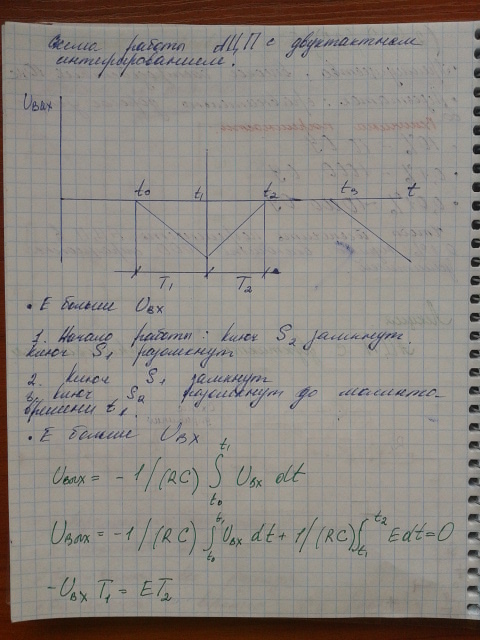 Схема работы АЦП с двухтактным
интегрированием.
Uвых
t₀ t₁ t₂ t₃ t
T₁ T₂
• E больше Uвх
1. Начало работы: ключ S₂ замкнут.
ключ S₁ разомкнут
2. Ключ S₁ замкнут
ключ S₂ разомкнут до момента
времени t₁.
• E больше Uвх
Uвых = - 1/(RC) ∫ t₀ t₁ Uвх dt
Uвых = -1/(RC) ∫ t₀ t₁ Uвх dt + 1/(RC) ∫ t₁ t₂ E dt = 0
-Uвх T₁ = ET₂